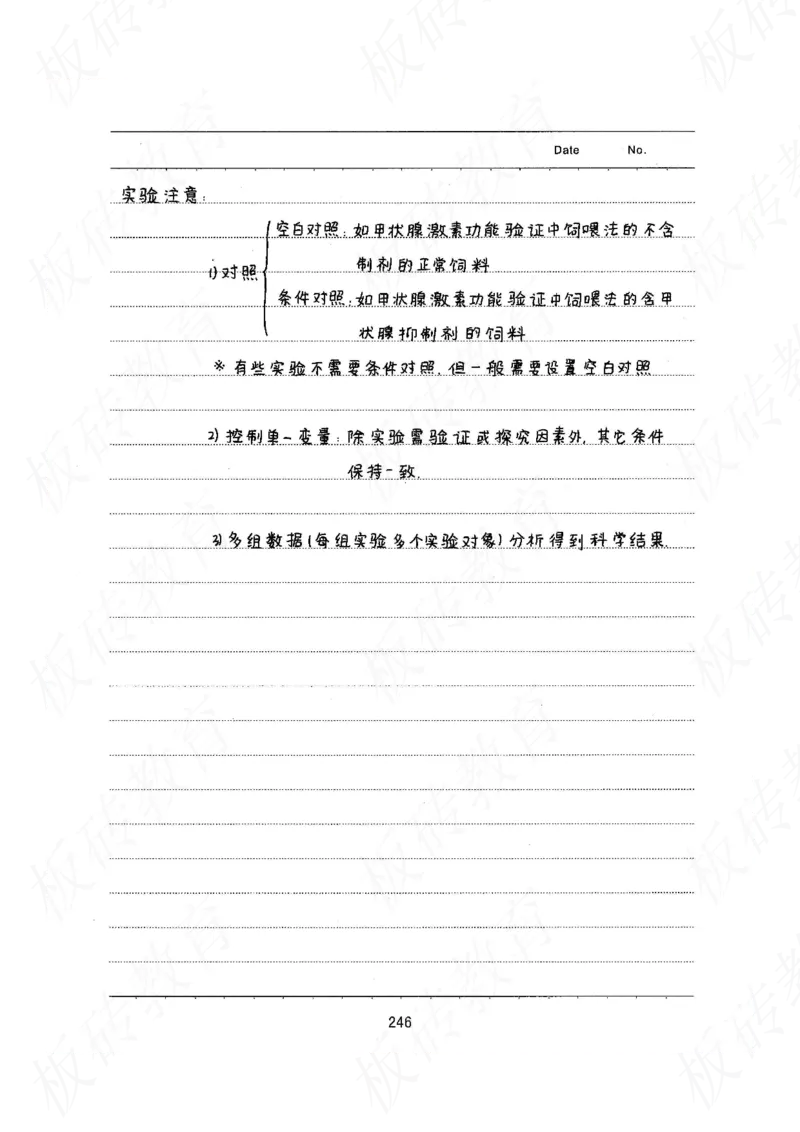 Date No.
实验注意:
空白对照:如甲状腺激素功能验证中饲喂法的不含
制剂的正常饲料
1)对照
条件对照:如甲状腺激素功能验证中饲喂法的含甲
状腺抑制剂的饲料
※有些实验不需要条件对照,但一般需要设置空白对照
2)控制单一变量:除实验需验证或探究因素外,其它条件
保持一致.
3)多组数据(每组实验多个实验对象)分析得到科学结果.
246
板砖教育